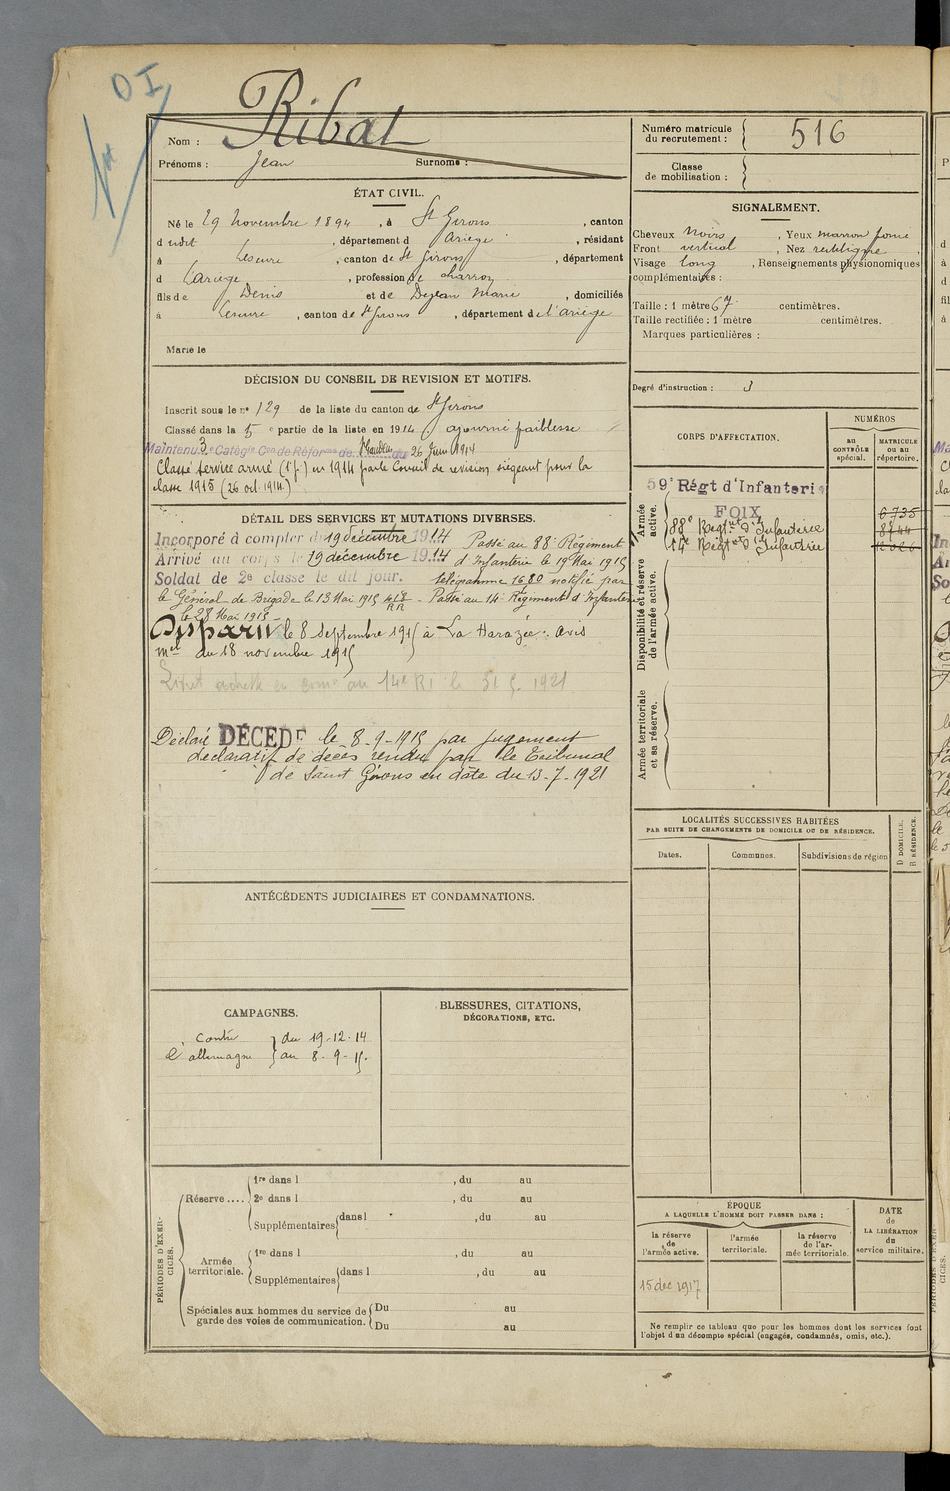 Ribat
Nom :
Prénoms : Jean Surnoms :
Numéro matricule du recrutement : 516
Classe de mobilisation :
ÉTAT CIVIL.
Né le 29 Novembre 1894, à St Girons, canton
dudit, département d Ariège, résidant
à Lescure, canton de St Girons, département
d l'Ariège, profession de charron
fils de Denis et de Dejean Marie, domiciliés
à Lescure, canton de St Girons, département de l'ariège
Marié le
SIGNALEMENT.
Cheveux Noirs, Yeux marron foncé
Front vertical, Nez rectiligne,
Visage long, Renseignements physionomiques
complémentaires :
Taille : 1 mètre 67 centimètres.
Taille rectifiée : 1 mètre centimètres.
Marques particulières :
Degré d'instruction : 3
DÉCISION DU CONSEIL DE REVISION ET MOTIFS.
Inscrit sous le no 129 de la liste du canton de St Girons
Classé dans la 5e partie de la liste en 1914 ajourné faiblesse
Maintenu 3e Catégie Con de Réforme de du 26 Juin 1914
Classé service armé (1e p.) en 1914 par le Conseil de revision siégeant pour la
classe 1915 (26 oct. 1914.)
DÉTAIL DES SERVICES ET MUTATIONS DIVERSES.
Incorporé à compter du 19 décembre 1914
Arrivé au corps le 19 décembre 1914
Soldat de 2e classe le dit jour.
Passé au 88e Régiment
d'Infanterie le 19 Mai 1915
télégramme 1680 notifié par
le Général de Brigade le 13 Mai 1915 - Passé au 14e Régiment d'Infanterie
le 28 Mai 1915 -
Disparu le 8 Septembre 1915 à La Harazée. Avis
mel du 18 novembre 1915
Déclaré DÉCÉDÉ le 8-9-1915 par jugement
déclaratif de décès rendu par le Tribunal
de Saint Girons en date du 13-7-1921
CORPS D'AFFECTATION.
NUMÉROS
au CONTRÔLE spécial.
MATRICULE ou au répertoire.
Armée active.
59e Régt d'Infanterie
FOIX 6735
88e Régt d'Infanterie 8744
14e Régt d'Infanterie
Disponibilité et réserve de l'armée active.
Armée territoriale et sa réserve.
LOCALITÉS SUCCESSIVES HABITÉES
PAR SUITE DE CHANGEMENTS DE DOMICILE OU DE RÉSIDENCE.
Dates. Communes. Subdivisions de région
D DOMICILE.
R RÉSIDENCE.
ANTÉCÉDENTS JUDICIAIRES ET CONDAMNATIONS.
CAMPAGNES.
contre du 19-12-14
l'allemagne au 8-9-15.
BLESSURES, CITATIONS,
DÉCORATIONS, ETC.
PÉRIODES D'EXERCICES.
Réserve ....
1re dans l , du au
2e dans l , du au
Supplémentaires dans l , du au
Armée territoriale.
1re dans l , du au
Supplémentaires dans l , du au
Spéciales aux hommes du service de garde des voies de communication.
Du au
Du au
ÉPOQUE
A LAQUELLE L'HOMME DOIT PASSER DANS :
la réserve de l'armée active.
l'armée territoriale.
la réserve de l'armée territoriale.
DATE
de
LA LIBÉRATION
du
service militaire.
15 dec 1917
Ne remplir ce tableau que pour les hommes dont les services font
l'objet d'un décompte spécial (engagés, condamnés, omis, etc.).